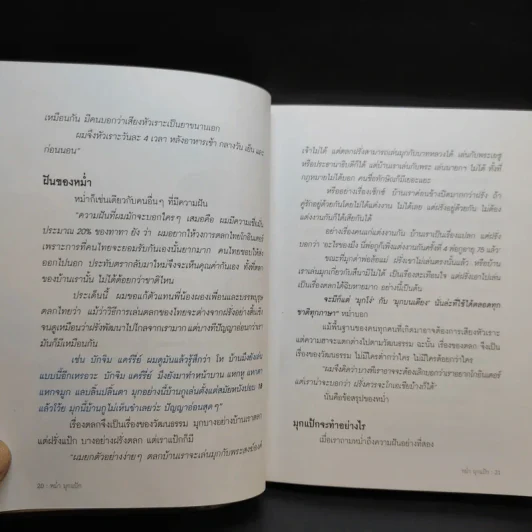 เหมือนกัน มีคนบอกว่าเสียงหัวเราะเป็นยาขนานเอก
ผมจึงหัวเราะวันละ 4 เวลา หลังอาหารเช้า กลางวัน เย็น และ
ก่อนนอน"
ฝันของหม่ำ
หม่ำก็เช่นเดียวกับคนอื่นๆ ที่มีความฝัน
"ความฝันที่ผมมักจะบอกใครๆ เสมอคือ ผมมีความเชื่อมั่น
ประมาณ 20% ของทาทา ยัง ว่า ผมอยากให้วงการตลกไทยโกอินเตอร์
เพราะการที่คนไทยจะยอมรับกันเองนั้นยากมาก คนไทยชอบให้
ออกไปนอก ประทับตรากลับมาใหม่จึงจะเห็นคุณค่ากันเอง ทั้งที่ตลก
ของบ้านเรานั้น ไม่ได้ด้อยกว่าชาติไหน
ประเด็นนี้ ผมขอแก้ตัวแทนพี่น้องผองเพื่อนและบรรพบุรุษ
ตลกไทยว่า แม้ว่าวิธีการเล่นตลกของไทยจะต่างจากฝรั่งอย่างสิ้นเชิง
จนดูเหมือนว่าฝรั่งพัฒนาไปไกลจากเรามาก แต่บางทีปัญญาอ่อนกว่าเรา
มันก็มีเหมือนกัน
เช่น บักจิม แคร์รีย์ ผมดูมันแล้วรู้สึกว่า โห บ้านมึงยังเล่น
แบบนี้อีกเหรอวะ บักจิม แคร์รีย์ มึงยังมาทำหน้าบาน แหกหู แหกตา
แหกจมูก แลบลิ้นปลิ้นตา มุกอย่างนี้บ้านกูเล่นตั้งแต่สมัยหนังประบ 16
แล้วไว้ย มุกนี้บ้านกูไม่เห็นขำเลยว่ะ ปัญญาอ่อนสุดๆ"
เรื่องตลกจึงเป็นเรื่องของวัฒนธรรม มุกบางอย่างบ้านเราตลก
แต่ฝรั่งแป้ก บางอย่างฝรั่งตลก แต่เราแป้กก็มี
"ผมยกตัวอย่างง่ายๆ ตลกบ้านเราจะเล่นมุกกับพระสงฆ์องค์
20 · หม่ำ มุกแป้ก
เจ้าไม่ได้ แต่ตลกฝรั่งสามารถเล่นมุกกับบาทหลวงได้ เล่นกับพระเยซู
หรือประธานาธิบดีก็ได้ แต่บ้านเราเล่นกับพระ เล่นนายกฯ ไม่ได้ ทั้งที่
กฎหมายไม่ได้บอก คนชื่อทักษิณก็มีเยอะแยะ
หรืออย่างเรื่องเซ็กซ์ บ้านเราค่อนข้างปิดมากกว่าฝรั่ง ถ้า
คู่รักอยู่ด้วยกันโดยไม่ได้แต่งงาน ไม่ได้เลย แต่ฝรั่งอยู่ด้วยกัน ไม่ต้อง
แต่งงานกันก็ได้เสียกันได้
อย่างเรื่องคนแก่แต่งงานกัน บ้านเราเป็นเรื่องแปลก แต่ฝรั่ง
บอกว่า อะไรของมึง นี่พ่อกูก็เพิ่งแต่งงานกันครั้งที่ 4 พ่อกูอายุ 75 แล้ว
ขณะที่มุกด่าพ่อล้อแม่ ฝรั่งเขาไม่เล่นตรงนั้นแล้ว หรือบ้าน
เราเล่นมุกเกี่ยวกับสึนามิไม่ได้ เป็นเรื่องสะเทือนใจ แต่ฝรั่งเอาไปเล่น
เป็นเรื่องตลกได้ฉิบหายมาก อย่างนี้เป็นต้น
จะมีก็แต่ 'มุกใบ้' กับ 'มุกบนเตียง' นั่นล่ะที่ใช้ได้ตลอดทุก
ชาติทุกภาษา" หม่ำบอก
แม้พื้นฐานของคนทุกคนที่เกิดมาอาจต้องการเสียงหัวเราะ
แต่ความฮาจะแตกต่างไปตามวัฒนธรรม ฉะนั้น เรื่องของตลก จึงเป็น
เรื่องของวัฒนธรรม ไม่มีใครต่ำกว่าใคร ไม่มีใครด้อยกว่าใคร
"ผมจึงคิดว่าบางทีเราอาจจะต้องเลิกบอกว่าเราอยากโกอินเตอร์
แต่เราน่าจะบอกว่า ฝรั่งควรจะโกเอเชียบ้างก็ได้"
นั่นคือข้อสรุปของหม่ำ
มุกแป้กจะทำอย่างไร
เมื่อเราถามหม่ำถึงความฝันอย่างที่สอง
หม่ำ มุกแป้ก · 21